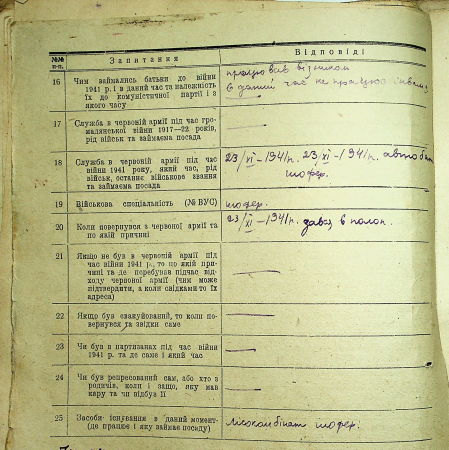 №№ п-п.
Запитання
Відповіді
16
Чим займались батьки до війни
1941 р. і в даний час та належність
їх до комуністичної партії і з
якого часу
працював візником
в даний час не працює
17
Служба в червоній армії під час гро-
мадянської війни 1917—22 років,
рід військ та займаєма посада
—
18
Служба в червоній армії під час
війни 1941 року, який час, рід
військ, останнє військове звання
та займаєма посада
23/VI–1941р. 23/XI–1941р.
шофер.
19
Військова спеціальність (№ ВУС)
шофер.
20
Коли повернувся з червоної армії та
по якій причині
23/XI–1941р. дався в полон.
21
Якщо не був в червоній армії під
час війни 1941 р., то по якій при-
чині та де перебував підчас від-
ходу червоної армії (чим може
підтвердити, а коли свідками то їх
адреса)
—
22
Якщо був евакуйований, то коли по-
вернувся та звідки саме
—
23
Чи був в партизанах під час війни
1941 р. та де саме і який час
—
24
Чи був репресований сам, або хто з
родичів, коли і защо, яку мав
кару та чи відбув її
—
25
Засоби існування в даний момент
(де працює і яку займає посаду)
лісокомбінат шофер.